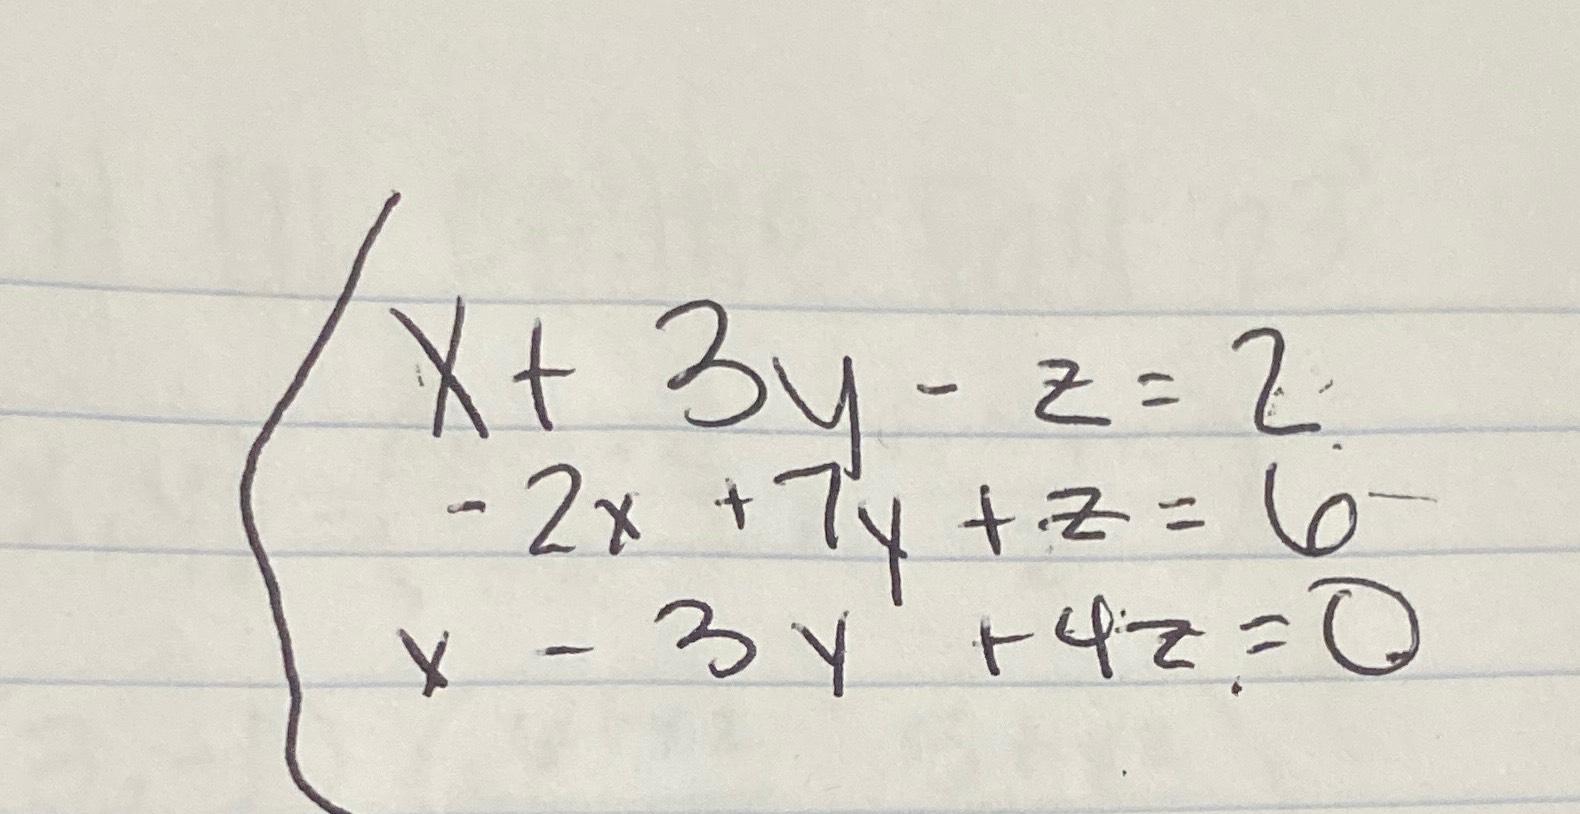 x + 3y - z = 2
- 2x + 7y + z = 6
x - 3y + 4z = 0